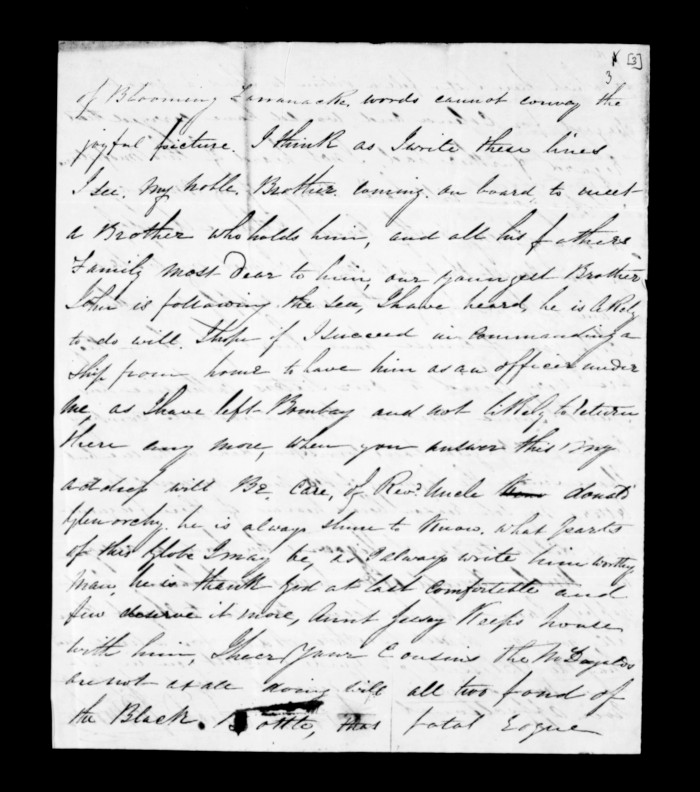 [3]
3
of Blooming Tarranacke, words cannot convay the
joyful picture. I think as I write these lines
I see. My noble. Brother. Coming. on board to meet
a Brother who holds him, and all his fathers
Family most Dear to him, our youngest Brother
John is following. the sea, I have heard, he is
to do will. I hope if I succeed in Commanding a
ship from home to have him as an officer under
me, as I have left Bombay and not likely to return
there any more, when you answer this my
address will Be. Care, of Revd. Uncle donald
Glenorchy. he is always to know. what parts
of this Globe I may be, as I always write him worthy
Man, he is thank God at last comfortable and
few deserve it more, Aunt keeps house
with him, I hear your Cousins the
are not at all doing will all two fond of
the Black. Bottle, that fatal